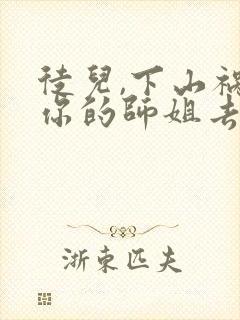 徒兒,下山禍
你的師姐去
浙東匹夫